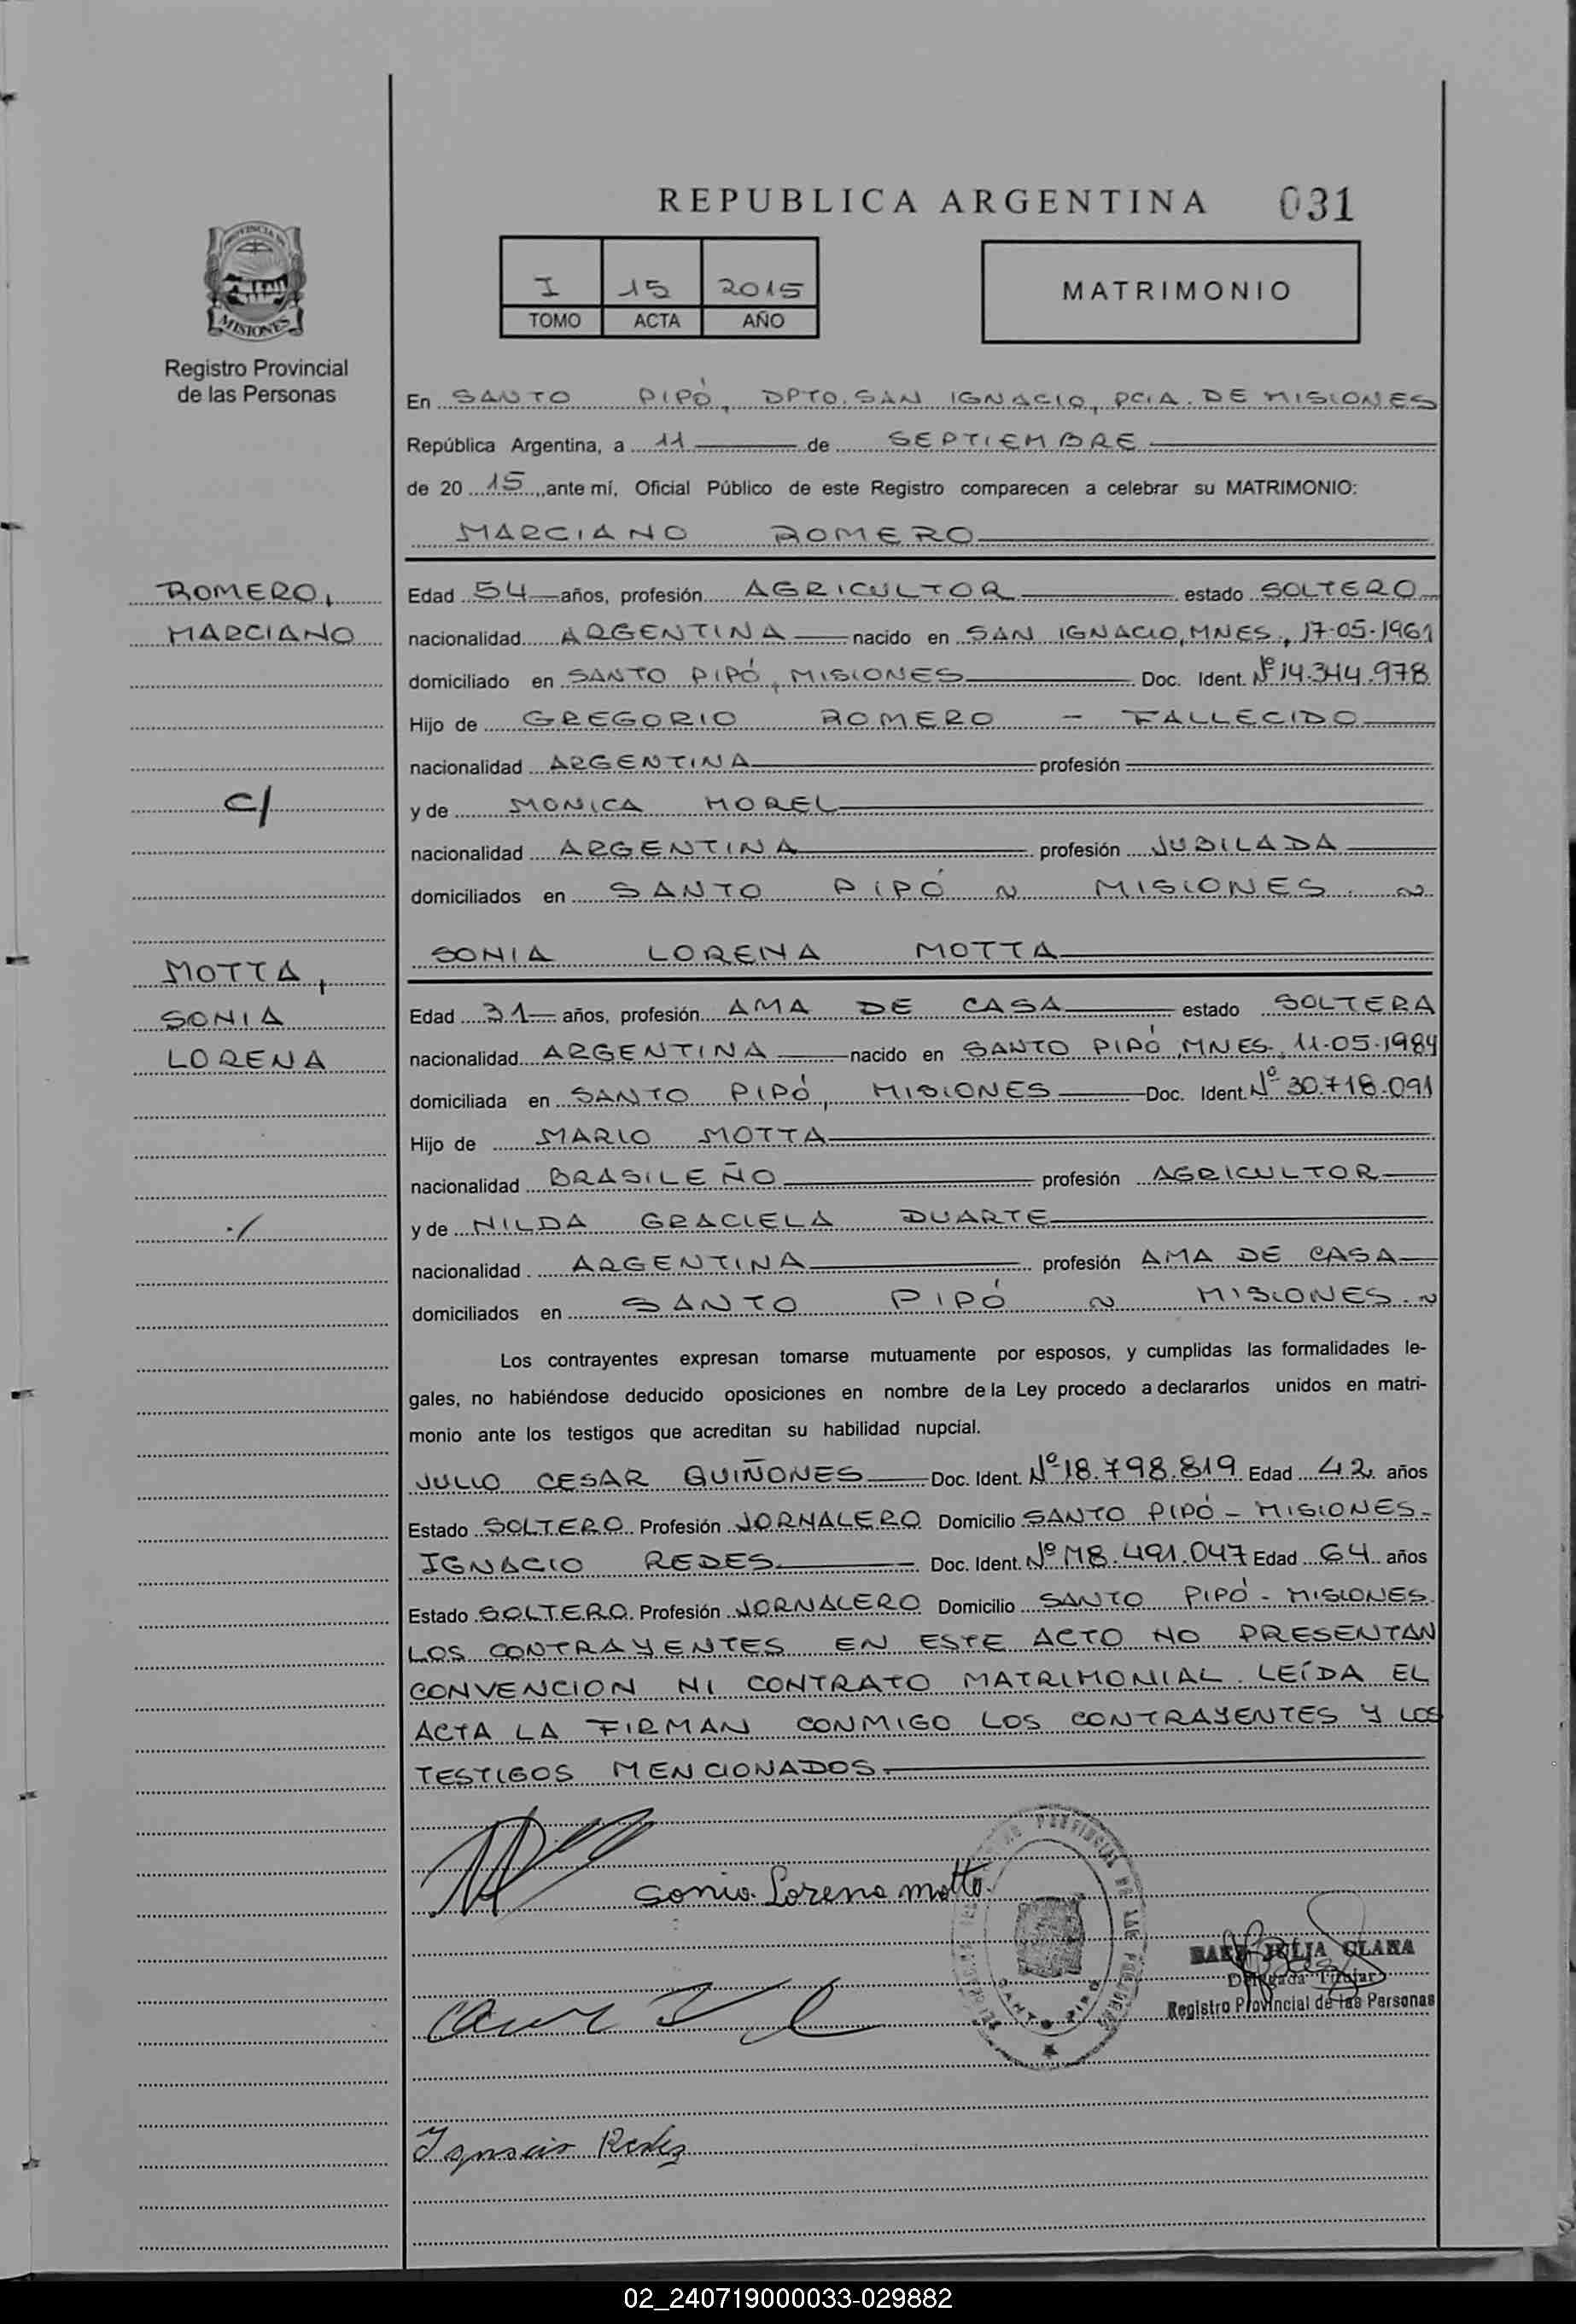 REPUBLICA ARGENTINA 031
PROVINCIA DE
MISIONES
I 15 2015
TOMO ACTA AÑO
MATRIMONIO
Registro Provincial
de las Personas
En SANTO PIPÓ, DPTO. SAN IGNACIO, PCIA. DE MISIONES
República Argentina, a 11 de SEPTIEMBRE
de 20 15, ante mí, Oficial Público de este Registro comparecen a celebrar su MATRIMONIO:
MARCIANO ROMERO
ROMERO,
MARCIANO
C/
MOTTA,
SONIA
LORENA
Edad 54 años, profesión AGRICULTOR estado SOLTERO
nacionalidad ARGENTINA nacido en SAN IGNACIO, MNES., 17-05-1961
domiciliado en SANTO PIPÓ, MISIONES Doc. Ident. Nº 14.344.978
Hijo de GREGORIO ROMERO - FALLECIDO
nacionalidad ARGENTINA profesión
y de MONICA MOREL
nacionalidad ARGENTINA profesión JUBILADA
domiciliados en SANTO PIPÓ ~ MISIONES. ~
SONIA LORENA MOTTA
Edad 31 años, profesión AMA DE CASA estado SOLTERA
nacionalidad ARGENTINA nacido en SANTO PIPÓ, MNES., 11-05-1984
domiciliada en SANTO PIPÓ, MISIONES Doc. Ident. Nº 30.718.091
Hijo de MARIO MOTTA
nacionalidad BRASILEÑO profesión AGRICULTOR
y de NILDA GRACIELA DUARTE
nacionalidad ARGENTINA profesión AMA DE CASA
domiciliados en SANTO PIPÓ ~ MISIONES. ~
Los contrayentes expresan tomarse mutuamente por esposos, y cumplidas las formalidades le-
gales, no habiéndose deducido oposiciones en nombre de la Ley procedo a declararlos unidos en matri-
monio ante los testigos que acreditan su habilidad nupcial.
JULIO CESAR QUIÑONES Doc. Ident. Nº 18.798.819 Edad 42 años
Estado SOLTERO Profesión JORNALERO Domicilio SANTO PIPÓ - MISIONES-
IGNACIO REDES Doc. Ident. Nº M8.491.047 Edad 64 años
Estado SOLTERO Profesión JORNALERO Domicilio SANTO PIPÓ - MISIONES.
LOS CONTRAYENTES EN ESTE ACTO NO PRESENTAN
CONVENCION NI CONTRATO MATRIMONIAL. LEÍDA EL
ACTA LA FIRMAN CONMIGO LOS CONTRAYENTES Y LOS
TESTIGOS MENCIONADOS.
Sonia Lorena Motta.
PROVINCIAL DE LAS PERSONAS
SANTO PIPO
BAEZ JULIA CLARA
Delegada Titular
Registro Provincial de las Personas
Ignacio Redes
02_240719000033-029882